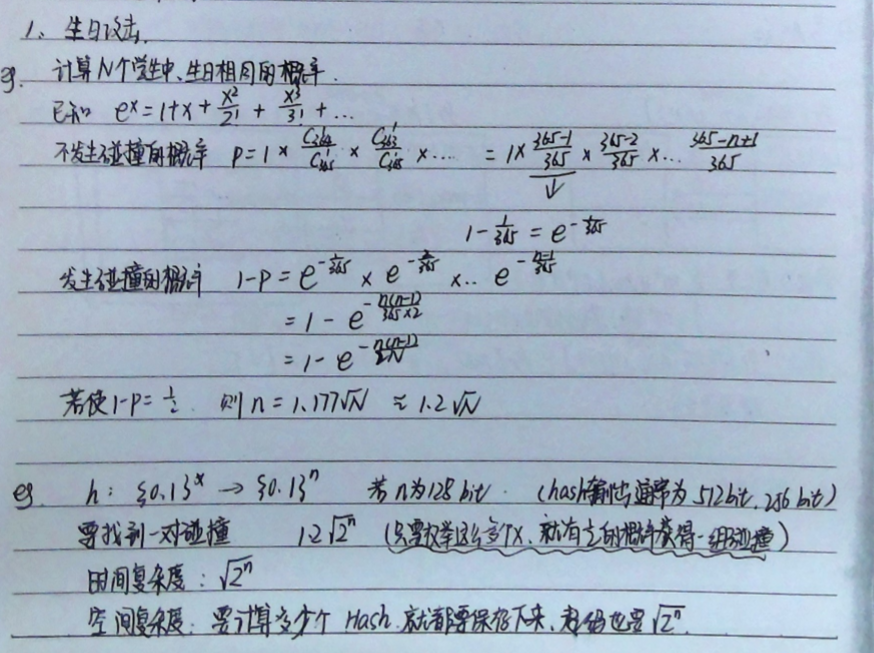 1、生日攻击.
eg. 计算N个学生中、生日相同的概率.
已知 e^x = 1+x+\frac{x^2}{2!}+\frac{x^3}{3!}+...
不发生碰撞的概率 P=1×\frac{C_{364}^1}{C_{365}^1}×\frac{C_{363}^1}{C_{365}^1}×... = 1×\frac{365-1}{365}×\frac{365-2}{365}×...\frac{365-n+1}{365}
↓
1-\frac{1}{365}=e^{-\frac{1}{365}}
发生碰撞的概率 1-P=e^{-\frac{1}{365}}×e^{-\frac{2}{365}}×..e^{-\frac{n-1}{365}}
=1-e^{-\frac{n(n-1)}{365×2}}
=1-e^{-\frac{n(n-1)}{2N}}
若使1-P=\frac{1}{2}. 则 n=1.177√N ≈1.2√N
eg. h: {0.1}^x → {0.1}^n 若n为128bit. (hash输出通常为512bit.256bit)
要找到一对碰撞 1.2√2^n (只要枚举这么多个X、就有1/2的概率获得一组碰撞)
时间复杂度: √2^n
空间复杂度: 要计算多少个Hash.就都要保存下来、起码也要√2^n.